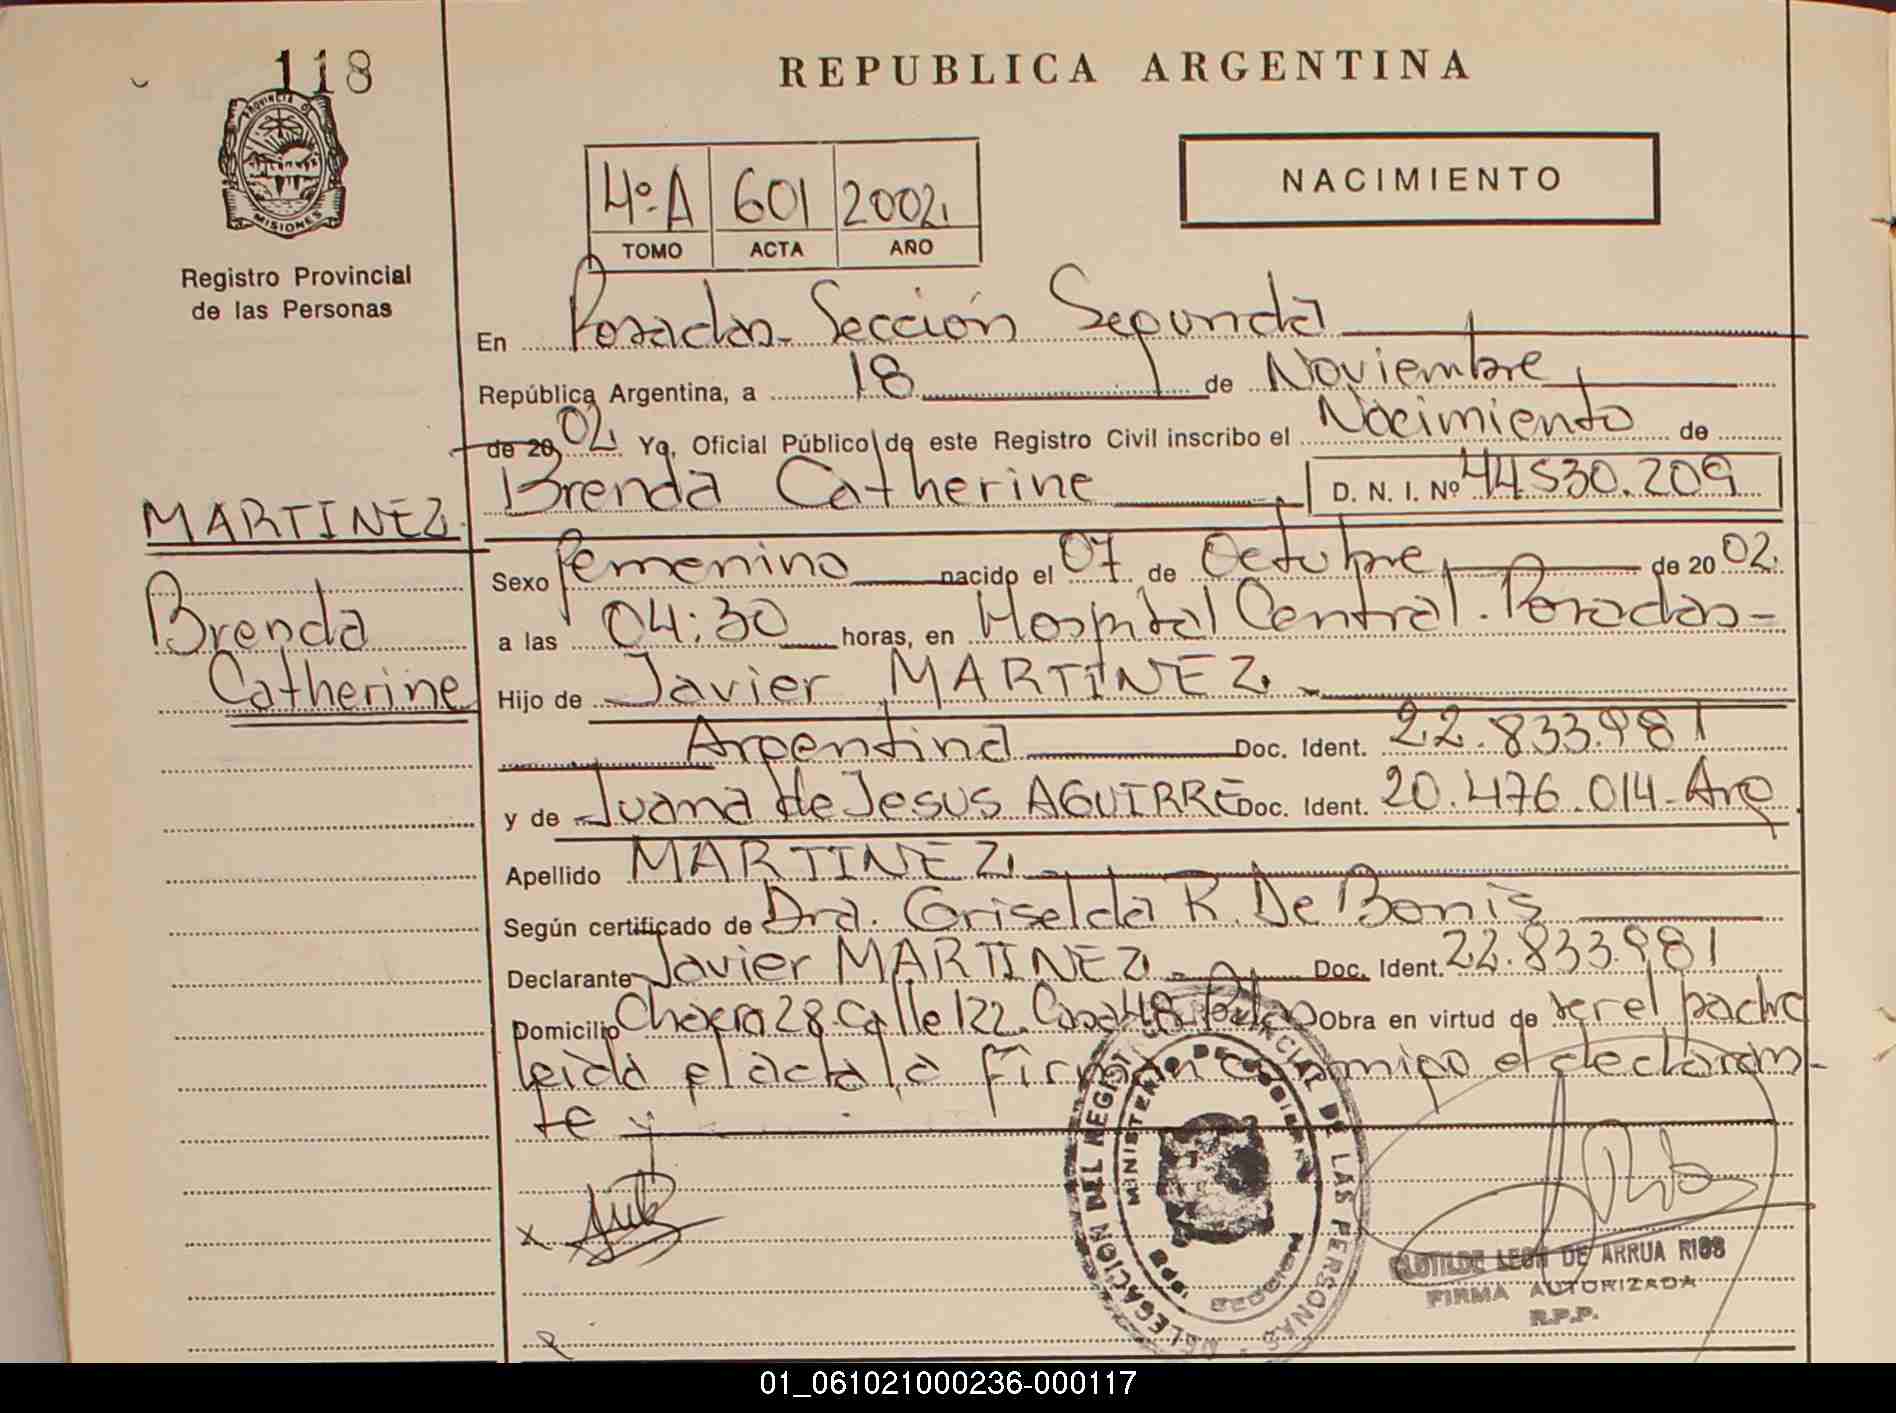 118
PROVINCIA DE
MISIONES
Registro Provincial
de las Personas
REPUBLICA ARGENTINA
4º-A 601 2002
TOMO ACTA AÑO
NACIMIENTO
En Posadas- Sección Segunda
República Argentina, a 18 de Noviembre
de 20 02 Yo, Oficial Público de este Registro Civil inscribo el Nacimiento de
Brenda Catherine D. N. I. Nº 44.530.209
MARTINEZ
Brenda
Catherine
Sexo femenino nacido el 07 de Octubre de 20 02.
a las 04:30 horas, en Hospital Central. Posadas-
Hijo de Javier MARTINEZ.
Argentina Doc. Ident. 22.833.981
y de Juana de Jesus AGUIRRE Doc. Ident. 20.476.014-Arg
Apellido MARTINEZ
Según certificado de Dra. Griselda R. De Bonis
Declarante Javier MARTINEZ- Doc. Ident. 22.833.981
Domicilio Chacra 28 Calle 122. Casa 48 Pdas Obra en virtud de ser el padre
leida el acta la firman conmigo el declaran-
te
x
DELEGACION DEL REGISTRO PROVINCIAL DE LAS PERSONAS
MINISTERIO DE GOBIERNO
CLOTILDE LEON DE ARRUA RIOS
FIRMA AUTORIZADA
R.P.P.
01_061021000236-000117